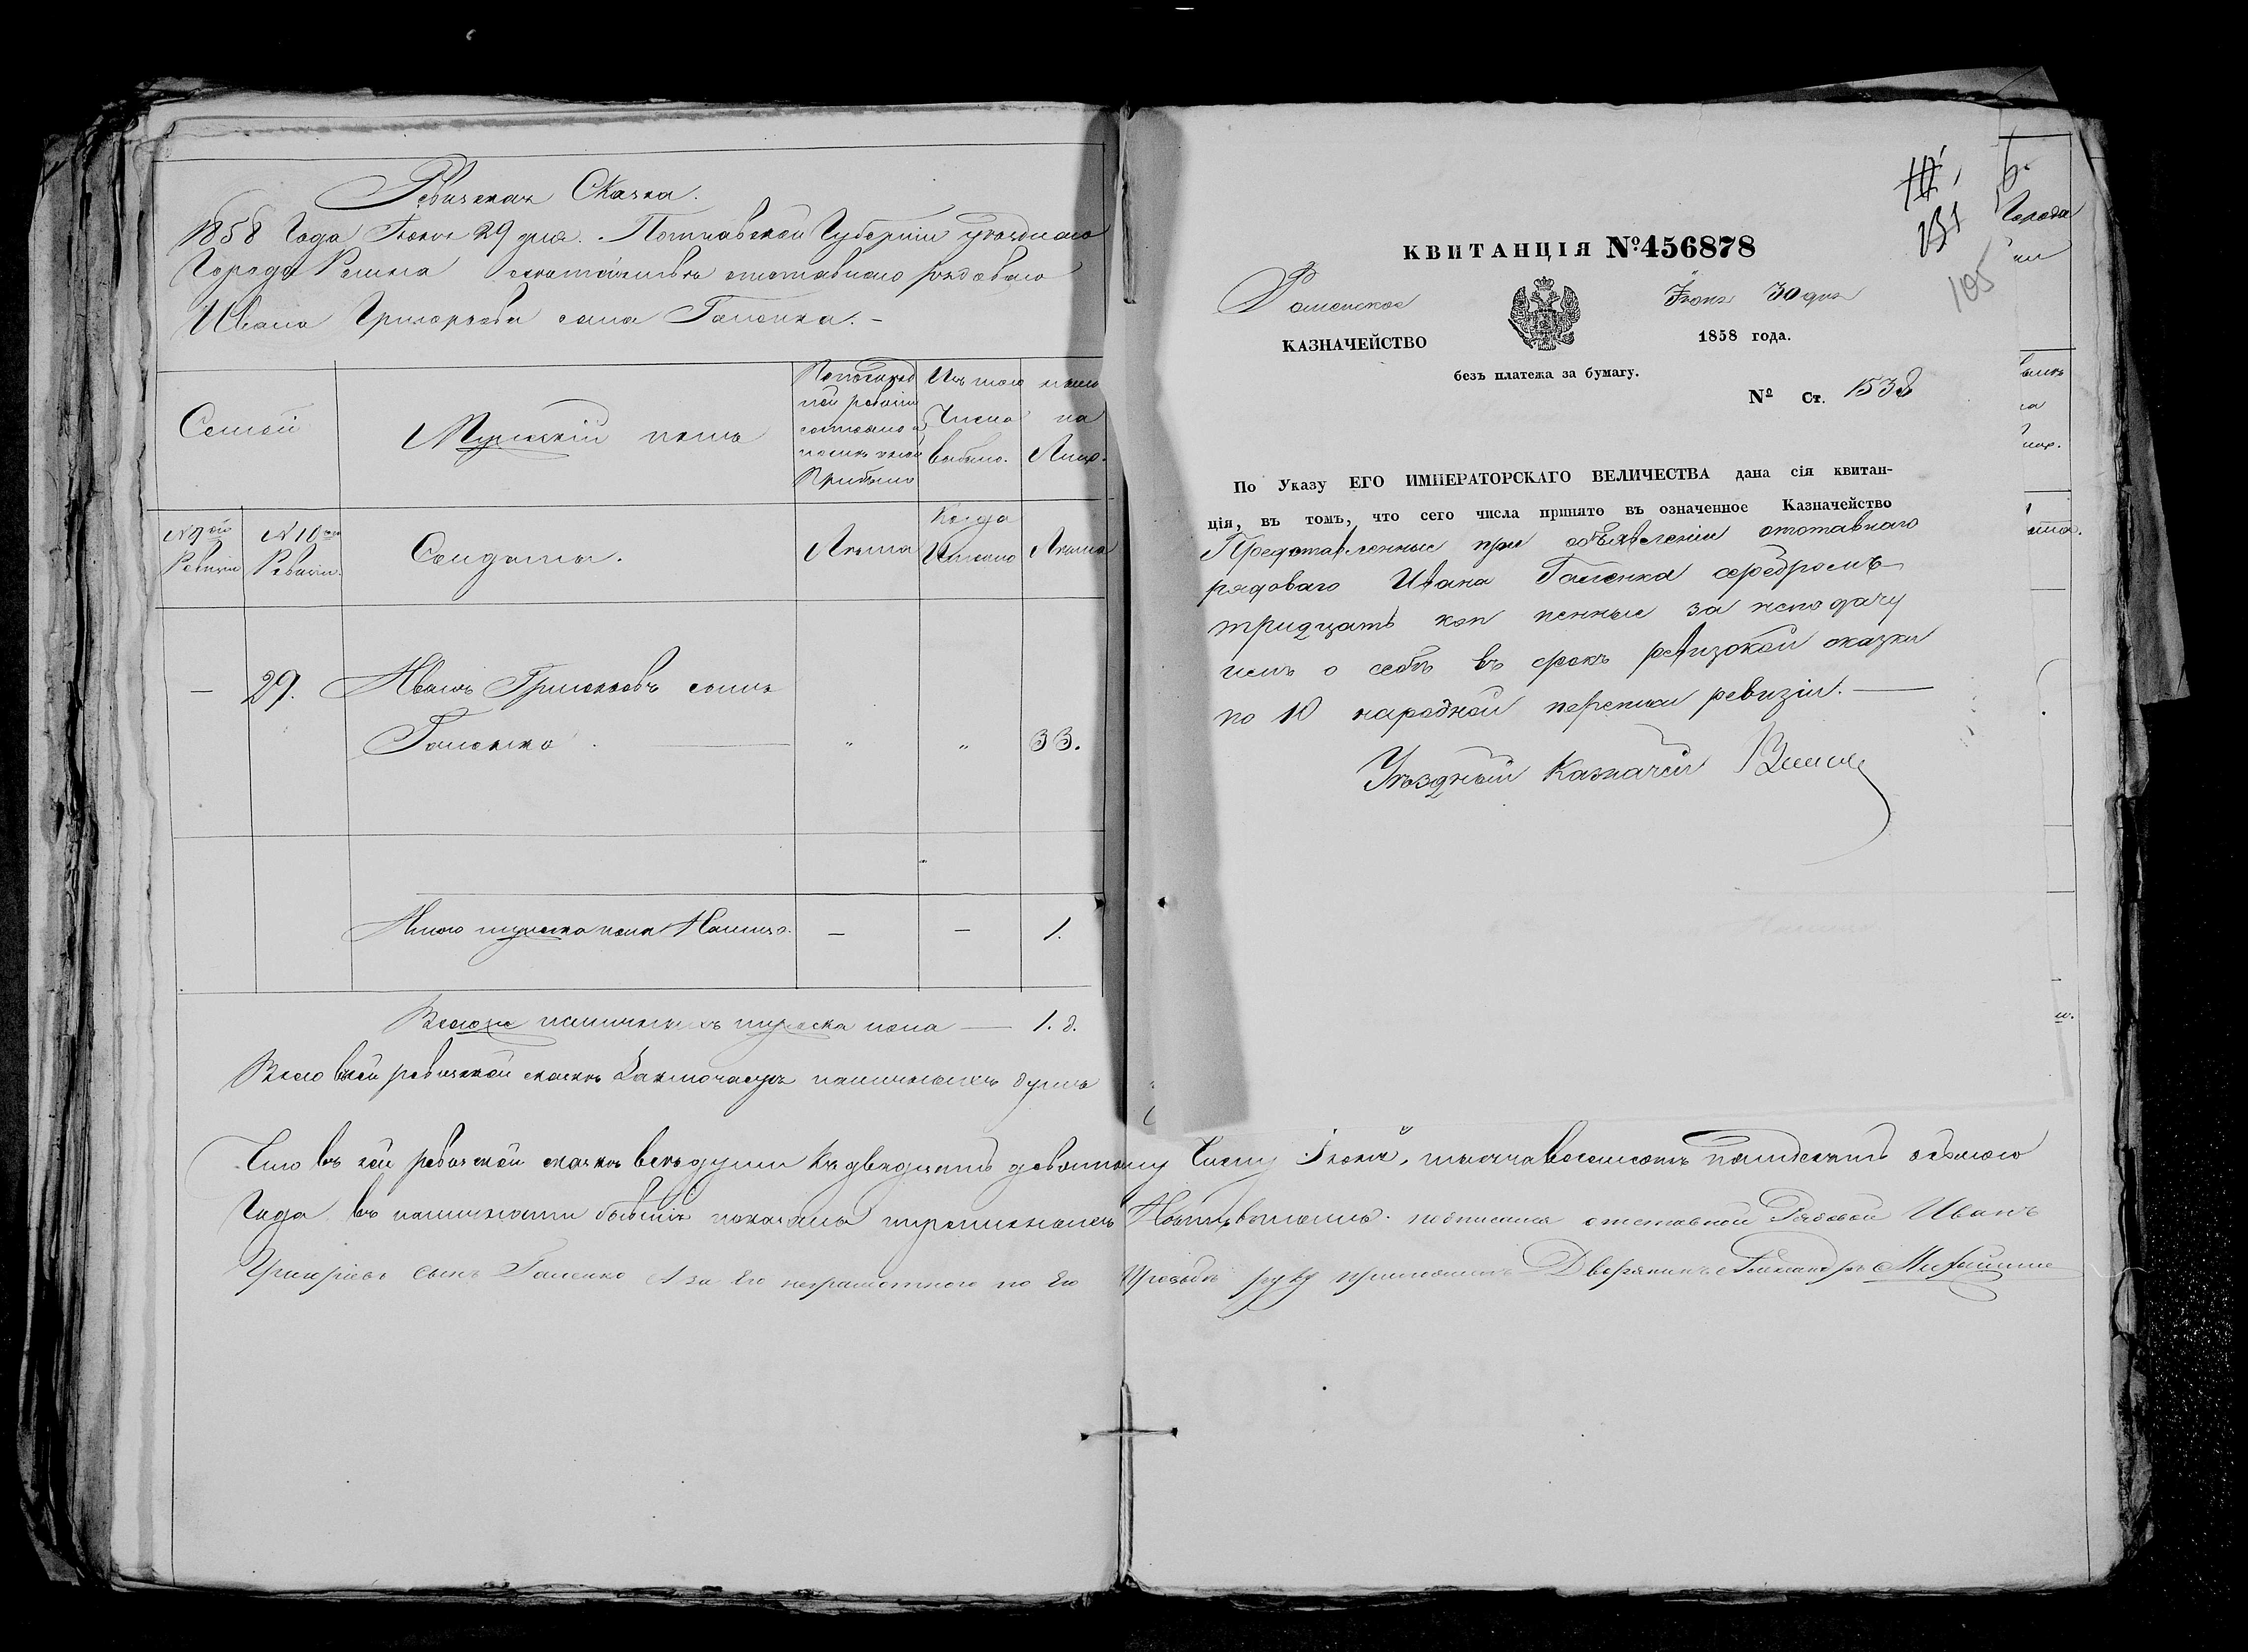 Ревизская Сказка.
1858 Года Июня 29 дня. Полтавской Губернии уезднаго
Города Ромна отставнаго рядоваго
Ивана Григорьева сына Галенка. –
Семей
Мужескій полъ
По последней ревизіи состояло и после оной Прибыло
Изъ того Числа выбыло.
ныне на Лицо.
№ 9ой Ревизіи
№ 10ой Ревизіи.
Солдаты.
Лета
Когда Именно
Лета
– 29. Иванъ Григорьевъ сынъ
Галенко. — " " 33.
Итого мужеска пола Налицо. – – 1.
Всего наличныхъ мужеска пола — 1. д.
Всего въ сей ревизской сказке Заключается наличныхъ душъ
Что въ сей ревизской сказке все души къ двадцать девятому Числу Іюня, тысяча восемьсотъ пятьдесятъ осьмого
Года въ наличности бывшія показаны и прописныхъ Нетъ, въ томъ подписался отставной Рядовой Иванъ
Григорьевъ Сынъ Галенко А за Его неграмотного по Его Прозьбе руку приложилъ Дворянинъ Александръ
КВИТАНЦІЯ №456878
Роменское
КАЗНАЧЕЙСТВО
Іюня 30 дня
1858 года.
безъ платежа за бумагу.
№ Ст. 1538
131
105
По Указу ЕГО ИМПЕРАТОРСКАГО ВЕЛИЧЕСТВА дана сія квитан-
ція, въ томъ, что сего числа принято въ означенное Казначейство
Представленные при объявленіи отставнаго
рядоваго Ивана Галенка серебромъ
тридцать коп пенные за неподачу
имъ о себѣ въ срокъ ревизской сказки
по 10 народной переписи ревизіи. —
Уѣздный Казначей
Города